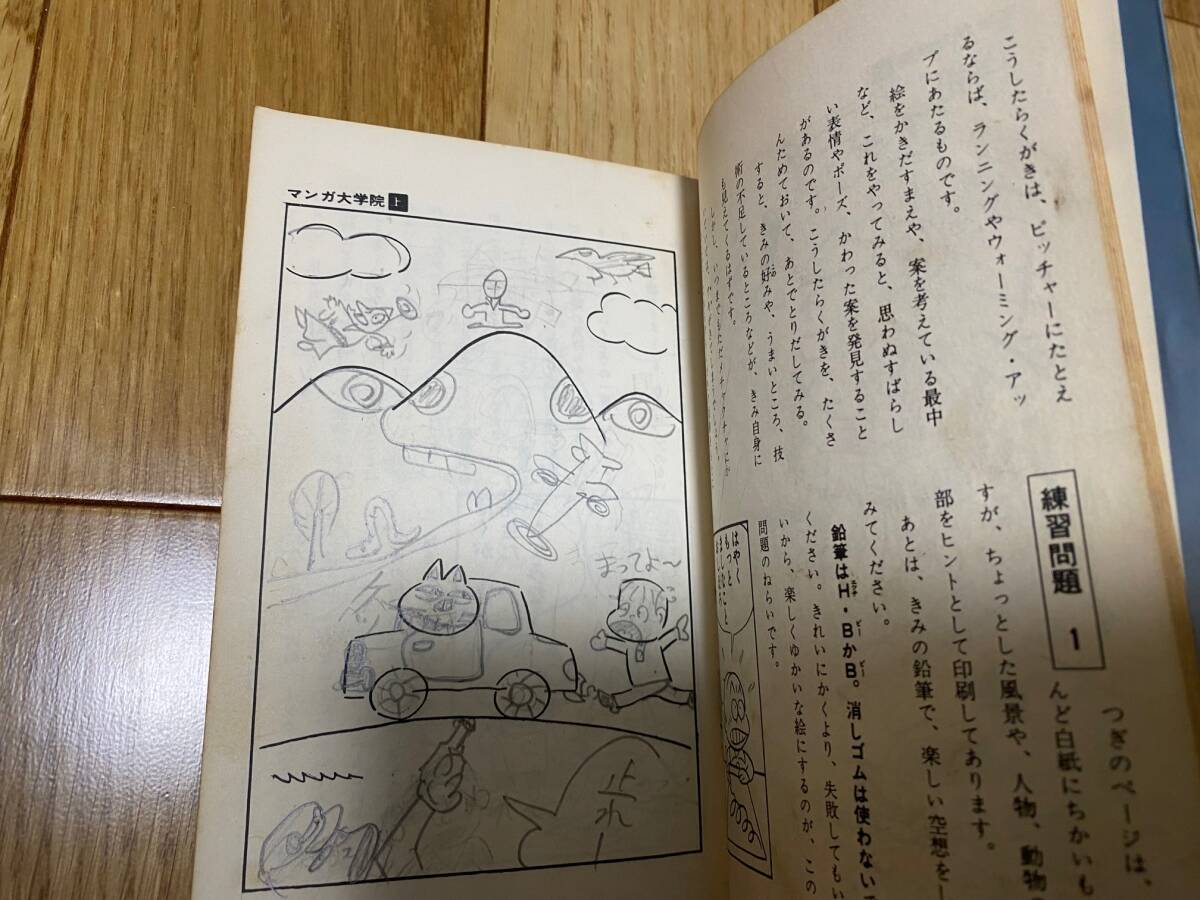 マンガ大学院 上
まってよ〜
止れー
こうしたらくがきは、ピッチャーにたとえ
るならば、ランニングやウォーミング・アッ
プにあたるものです。
絵をかきだすまえや、案を考えている最中
など、これをやってみると、思わぬすばらし
い表情やポーズ、かわった案を発見すること
があるのです。こうしたらくがきを、たくさ
んためておいて、あとでとりだしてみる。
すると、きみの好みや、うまいところ、技
術の不足しているところなどが、きみ自身に
も見えてくるはずです。
しかし、いつまでもただメチャクチャにか
練習問題 1
つぎのページは、
んど白紙にちかいも
すが、ちょっとした風景や、人物、動物
部をヒントとして印刷してあります。
あとは、きみの鉛筆で、楽しい空想を
みてください。
鉛筆はH・BかB。消しゴムは使わない
ください。きれいにかくより、失敗してもい
いから、楽しくゆかいな絵にするのが、この
問題のねらいです。
はやく
もっと